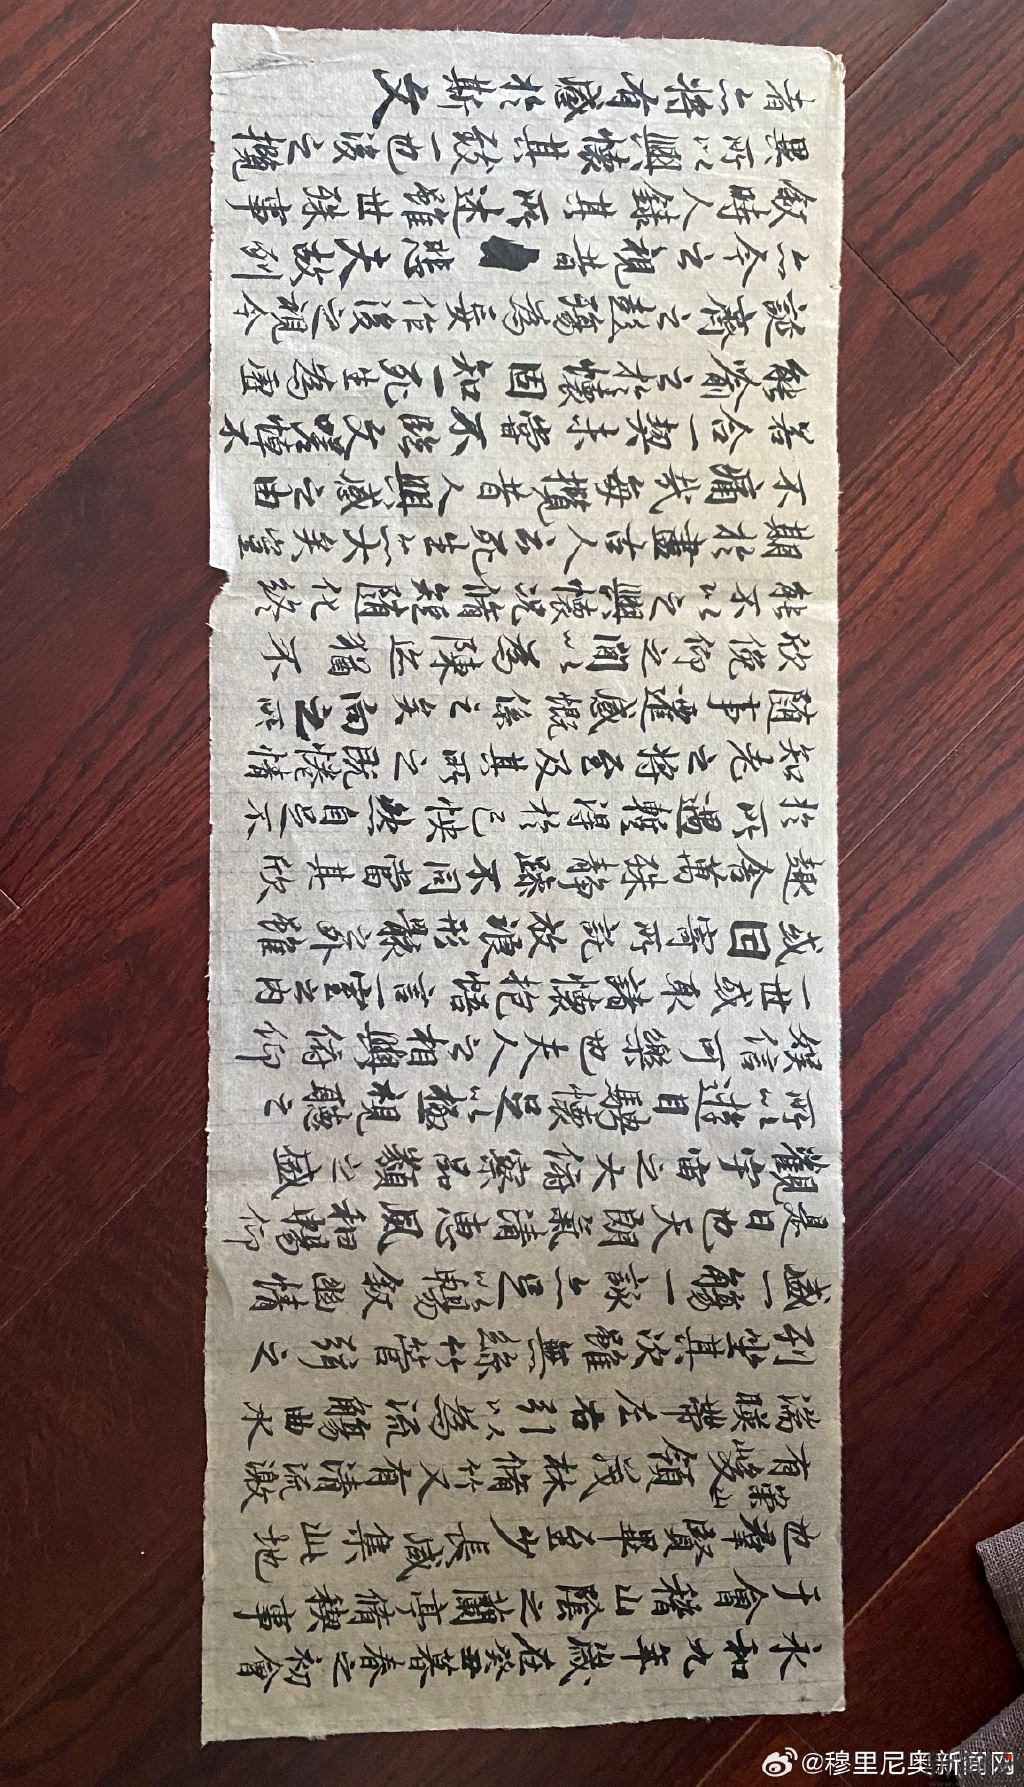 永和九年歲在癸丑暮春之初會
于會稽山陰之蘭亭脩稧事
也羣賢畢至少長咸集此地
有崇山峻領茂林脩竹又有清流激
湍暎帶左右引以為流觴曲水
列坐其次雖無絲竹管弦之
盛一觴一詠亦足以暢敘幽情
是日也天朗氣清惠風和暢仰
觀宇宙之大俯察品類之盛
所以遊目騁懷足以極視聽之
娛信可樂也夫人之相與俯仰
一世或取諸懷抱悟言一室之內
或因寄所託放浪形骸之外雖
趣舍萬殊静躁不同當其欣
於所遇蹔得於己快然自足不
知老之將至及其所之既惓情
隨事遷感慨係之矣向之所
欣俛仰之間以為陳迹猶不
能不以之興懷況脩短隨化終
期於盡古人云死生亦大矣豈
不痛哉每攬昔人興感之由
若合一契未嘗不臨文嗟悼不
能喻之於懷固知一死生為虛
誕齊彭殤為妄作後之視今
亦今之視昔悲夫故列
敘時人錄其所述雖世殊事
異所以興懷其致一也後之攬
者亦將有感於斯文
@穆里尼奥新闻网